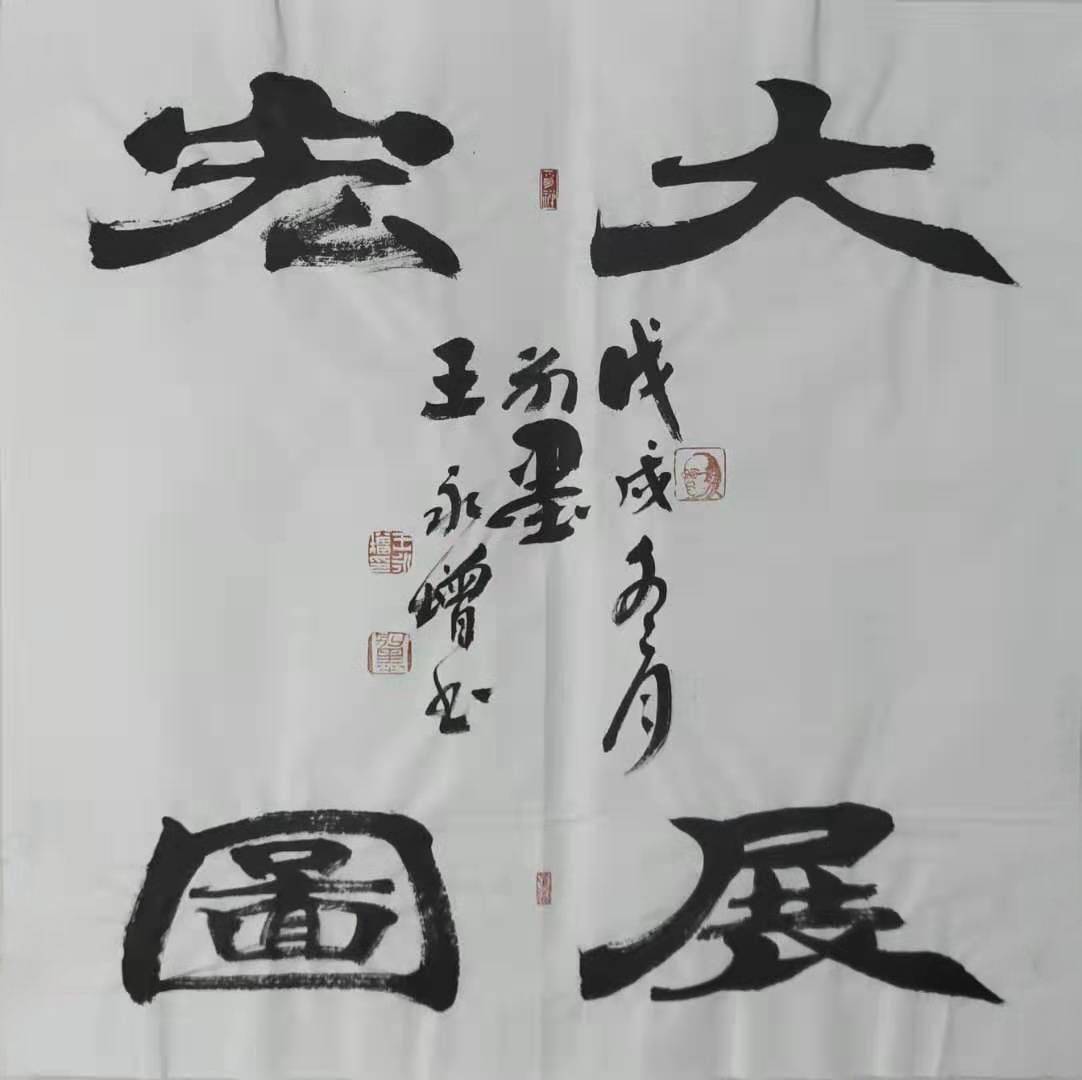 大展
宏圖
戊戌冬月
翰墨
王永增书